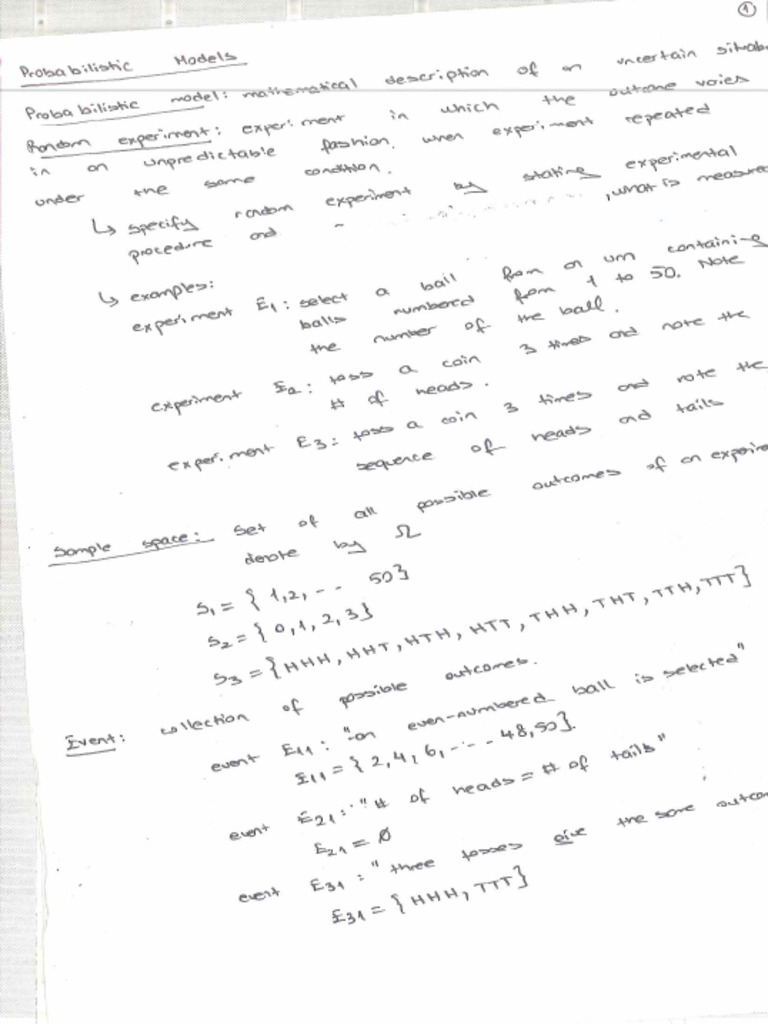 1
Probabilistic Models
Probabilistic model: mathematical description of an uncertain situa
Random experiment: experiment in which the outcome varies
in an unpredictable fashion, when experiment repeated
under the same condition.
↳ specify random experiment by stating experimental
procedure and , what is measure
↳ examples:
experiment E1: select a ball from an urn containing
balls numbered from 1 to 50. Note
the number of the ball.
experiment E2: toss a coin 3 times and note the
# of heads.
experiment E3: toss a coin 3 times and note the
sequence of heads and tails
Sample space: Set of all possible outcomes of an experim
denote by Ω
S1 = { 1,2, -- 50}
S2 = {0,1,2,3}
S3 = {HHH, HHT, HTH, HTT, THH, THT, TTH, TTT}
Event: collection of possible outcomes.
event E11: "an even-numbered ball is selected"
E11 = {2,4,6,---48,50}.
event E21: "# of heads = # of tails"
E21 = ∅
event E31: "three tosses give the same outcom
E31 = {HHH, TTT}